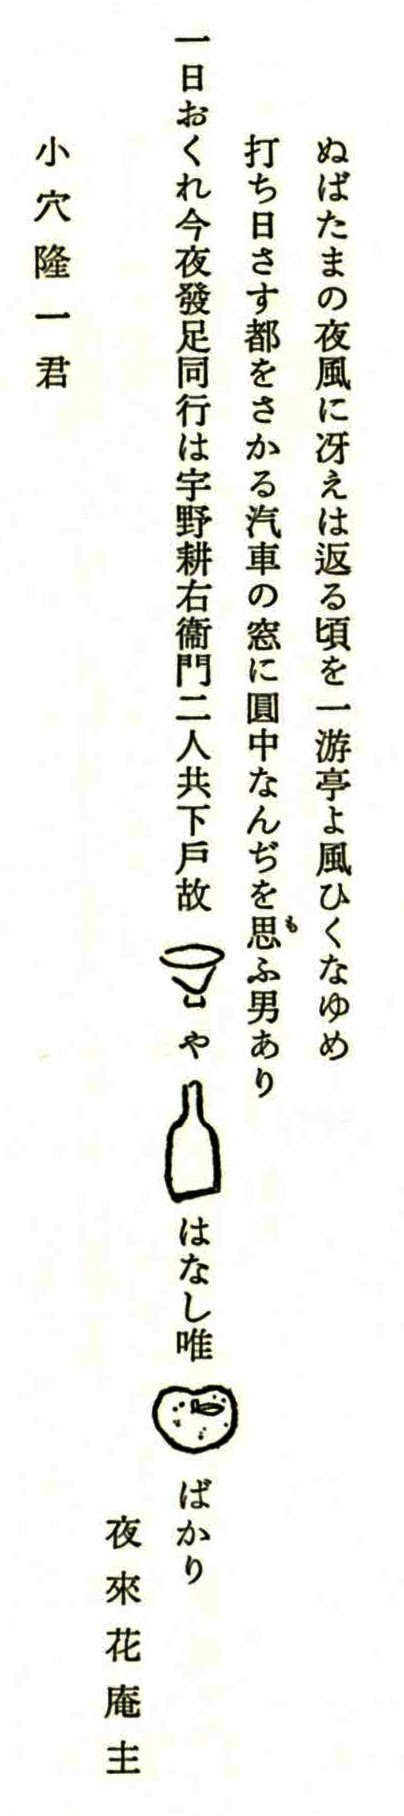 ぬばたまの夜風に冴えは返る頃を一游亭よ風ひくなゆめ
打ち日さす都をさかる汽車の窓に圓中なんぢを思ふ男あり
も
一日おくれ今夜發足同行は宇野耕右衞門二人共下戸故
や
はなし唯
ばかり
夜來花庵主
小穴隆一君